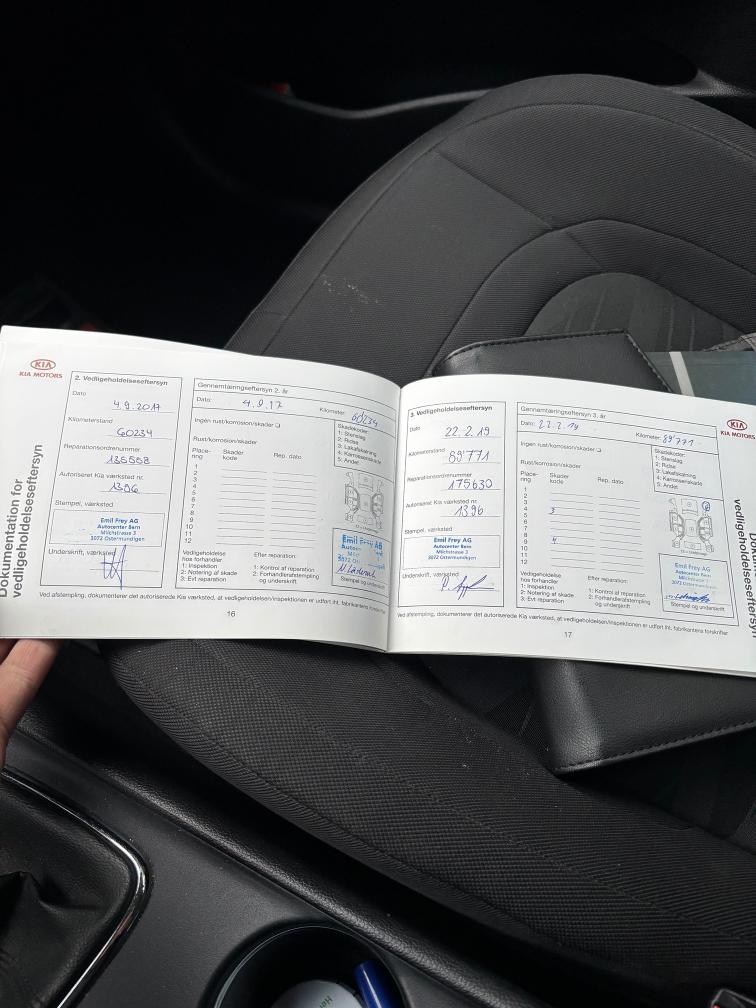 KIA
KIA MOTORS
Dokumentation for
vedligeholdelseseftersyn
2. Vedligeholdelseseftersyn
Dato
4.9.2017
Kilometerstand
60234
Reparationsordrenummer
135558
Autoriseret Kia værksted nr.
1396
Stempel, værksted
Emil Frey AG
Autocenter Bern
Milchstrasse 3
3072 Ostermundigen
Underskrift, værksted
Gennemtæringseftersyn 2. år
Dato: 4.9.17
Kilometer: 60234
Ingen rust/korrosion/skader
Rust/korrosion/skader
Placering
Skader kode
Rep. dato
1
2
3
4
5
6
7
8
9
10
11
12
Skadekoder:
1: Stenslag
2: Ridse
3: Lakafskalning
4: Karrosseriskade
5: Andet
Emil Frey AG
Vedligeholdelse
hos forhandler
1: Inspektion
2: Notering af skade
3: Evt reparation
Efter reparation:
1: Kontrol af reparation
2: Forhandlerafstempling
og underskrift
Stempel og underskrift
Ved afstempling, dokumenterer det autoriserede Kia værksted, at vedligeholdelsen/inspektionen er udført iht. fabrikantens
16
3. Vedligeholdelseseftersyn
Dato
22.2.19
Kilometerstand
89'771
Reparationsordrenummer
175630
Autoriseret Kia værksted nr.
1396
Stempel, værksted
Emil Frey AG
Autocenter Bern
Milchstrasse 3
3072 Ostermundigen
Underskrift, værksted
Gennemtæringseftersyn 3. år
Dato: 22.2.19
Kilometer: 89'771
Ingen rust/korrosion/skader
Rust/korrosion/skader
Placering
Skader kode
Rep. dato
1
2
3
4 3
5
6
7
8
9 4
10
11
12
Skadekoder:
1: Stenslag
2: Ridse
3: Lakafskalning
4: Karrosseriskade
5: Andet
Emil Frey AG
Autocenter Bern
Milchstrasse 3
3072 Ostermundigen
Vedligeholdelse
hos forhandler
1: Inspektion
2: Notering af skade
3: Evt reparation
Efter reparation:
1: Kontrol af reparation
2: Forhandlerafstempling
og underskrift
Stempel og underskrift
Ved afstempling, dokumenterer det autoriserede Kia værksted, at vedligeholdelsen/inspektionen er udført iht. fabrikantens forskrifter
17
KIA
KIA MOTORS
vedligeholdelseseftersyn